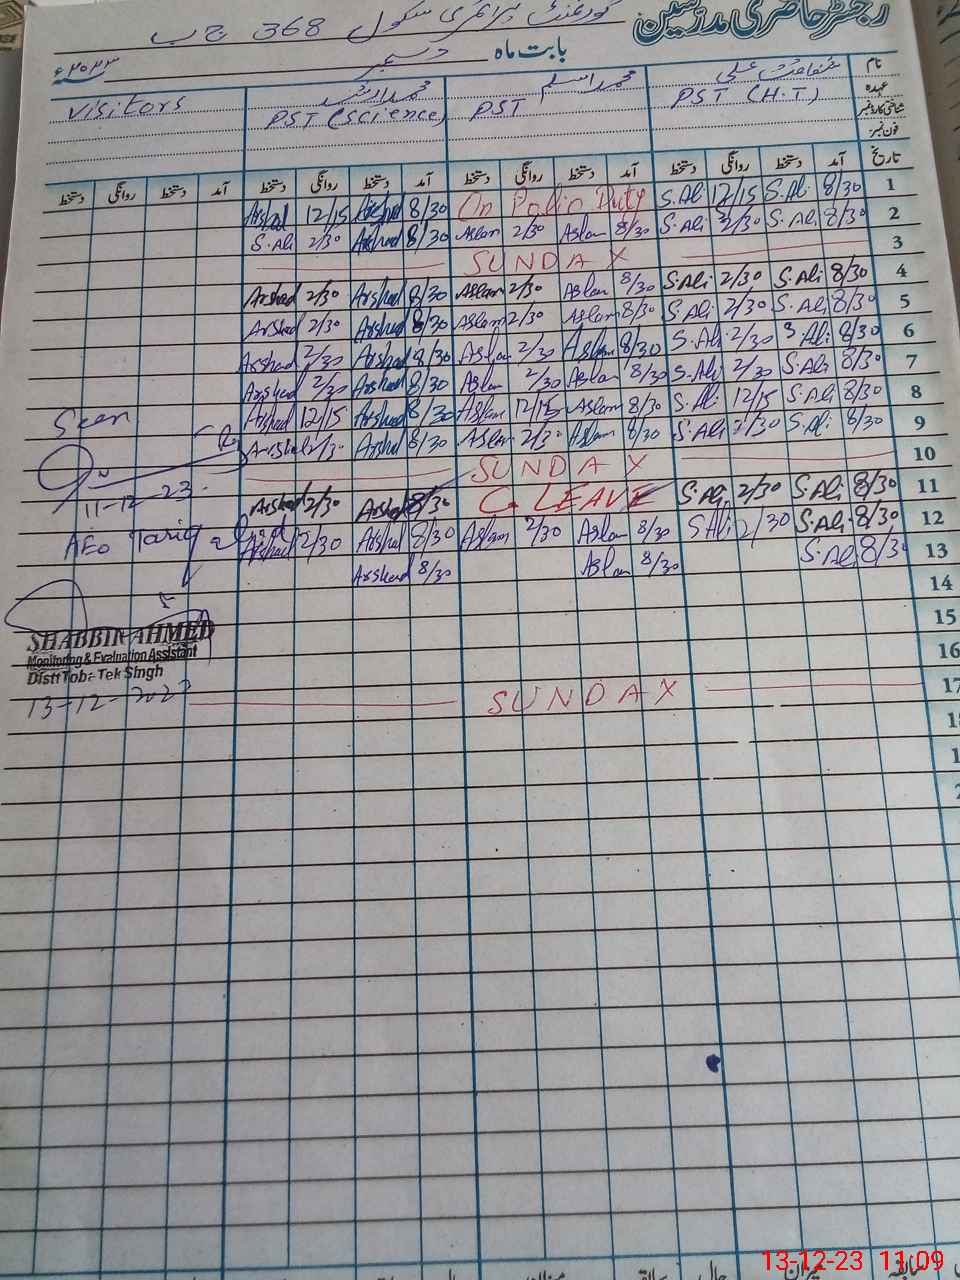 رجسٹر حاضری مدرسین
گورنمنٹ پرائمری سکول 368 ج ب
بابت ماہ دسمبر ۲۰۲۳ء
نام شفاعت علی محمد اسلم محمد ارشد
عہدہ PST (H.T) PST PST (Science) Visitors
شناختی کارڈ نمبر
فون نمبر
تاریخ آمد دستخط روانگی دستخط آمد دستخط روانگی دستخط آمد دستخط روانگی دستخط آمد دستخط روانگی دستخط
1 8/30 S.Ali 12/15 S.Ali On Polio Duty 8/30 Arshad 12/15 Arshad
2 8/30 S.Ali 2/30 S.Ali 8/30 Aslam 2/30 Aslam 8/30 Arshad 2/30 S.Ali
3 SUNDAY
4 8/30 S.Ali 2/30 S.Ali 8/30 Aslam 2/30 Aslam 8/30 Arshad 2/30 Arshad
5 8/30 S.Ali 2/30 S.Ali 8/30 Aslam 2/30 Aslam 8/30 Arshad 2/30 Arshad
6 8/30 S.Ali 2/30 S.Ali 8/30 Aslam 2/30 Aslam 8/30 Arshad 2/30 Arshad
7 8/30 S.Ali 2/30 S.Ali 8/30 Aslam 2/30 Aslam 8/30 Arshad 2/30 Arshad
8 8/30 S.Ali 12/15 S.Ali 8/30 Aslam 12/15 Aslam 8/30 Arshad 12/15 Arshad
9 8/30 S.Ali 2/30 S.Ali 8/30 Aslam 2/30 Aslam 8/30 Arshad 2/30 Arshad
10 SUNDAY
11 8/30 S.Ali 2/30 S.Ali C. LEAVE 8/30 Arshad 2/30 Arshad
12 8/30 S.Ali 2/30 S.Ali 8/30 Aslam 2/30 Aslam 8/30 Arshad 2/30 Arshad
13 8/30 S.Ali 8/30 Aslam 8/30 Arshad
14
15
16
17 SUNDAY
Seen
11-12-23
AEO Tariq
SHABBIR AHMED
Monitoring & Evaluation Assistant
Distt Tob: Tek Singh
13-12-2023
13-12-23 11:09